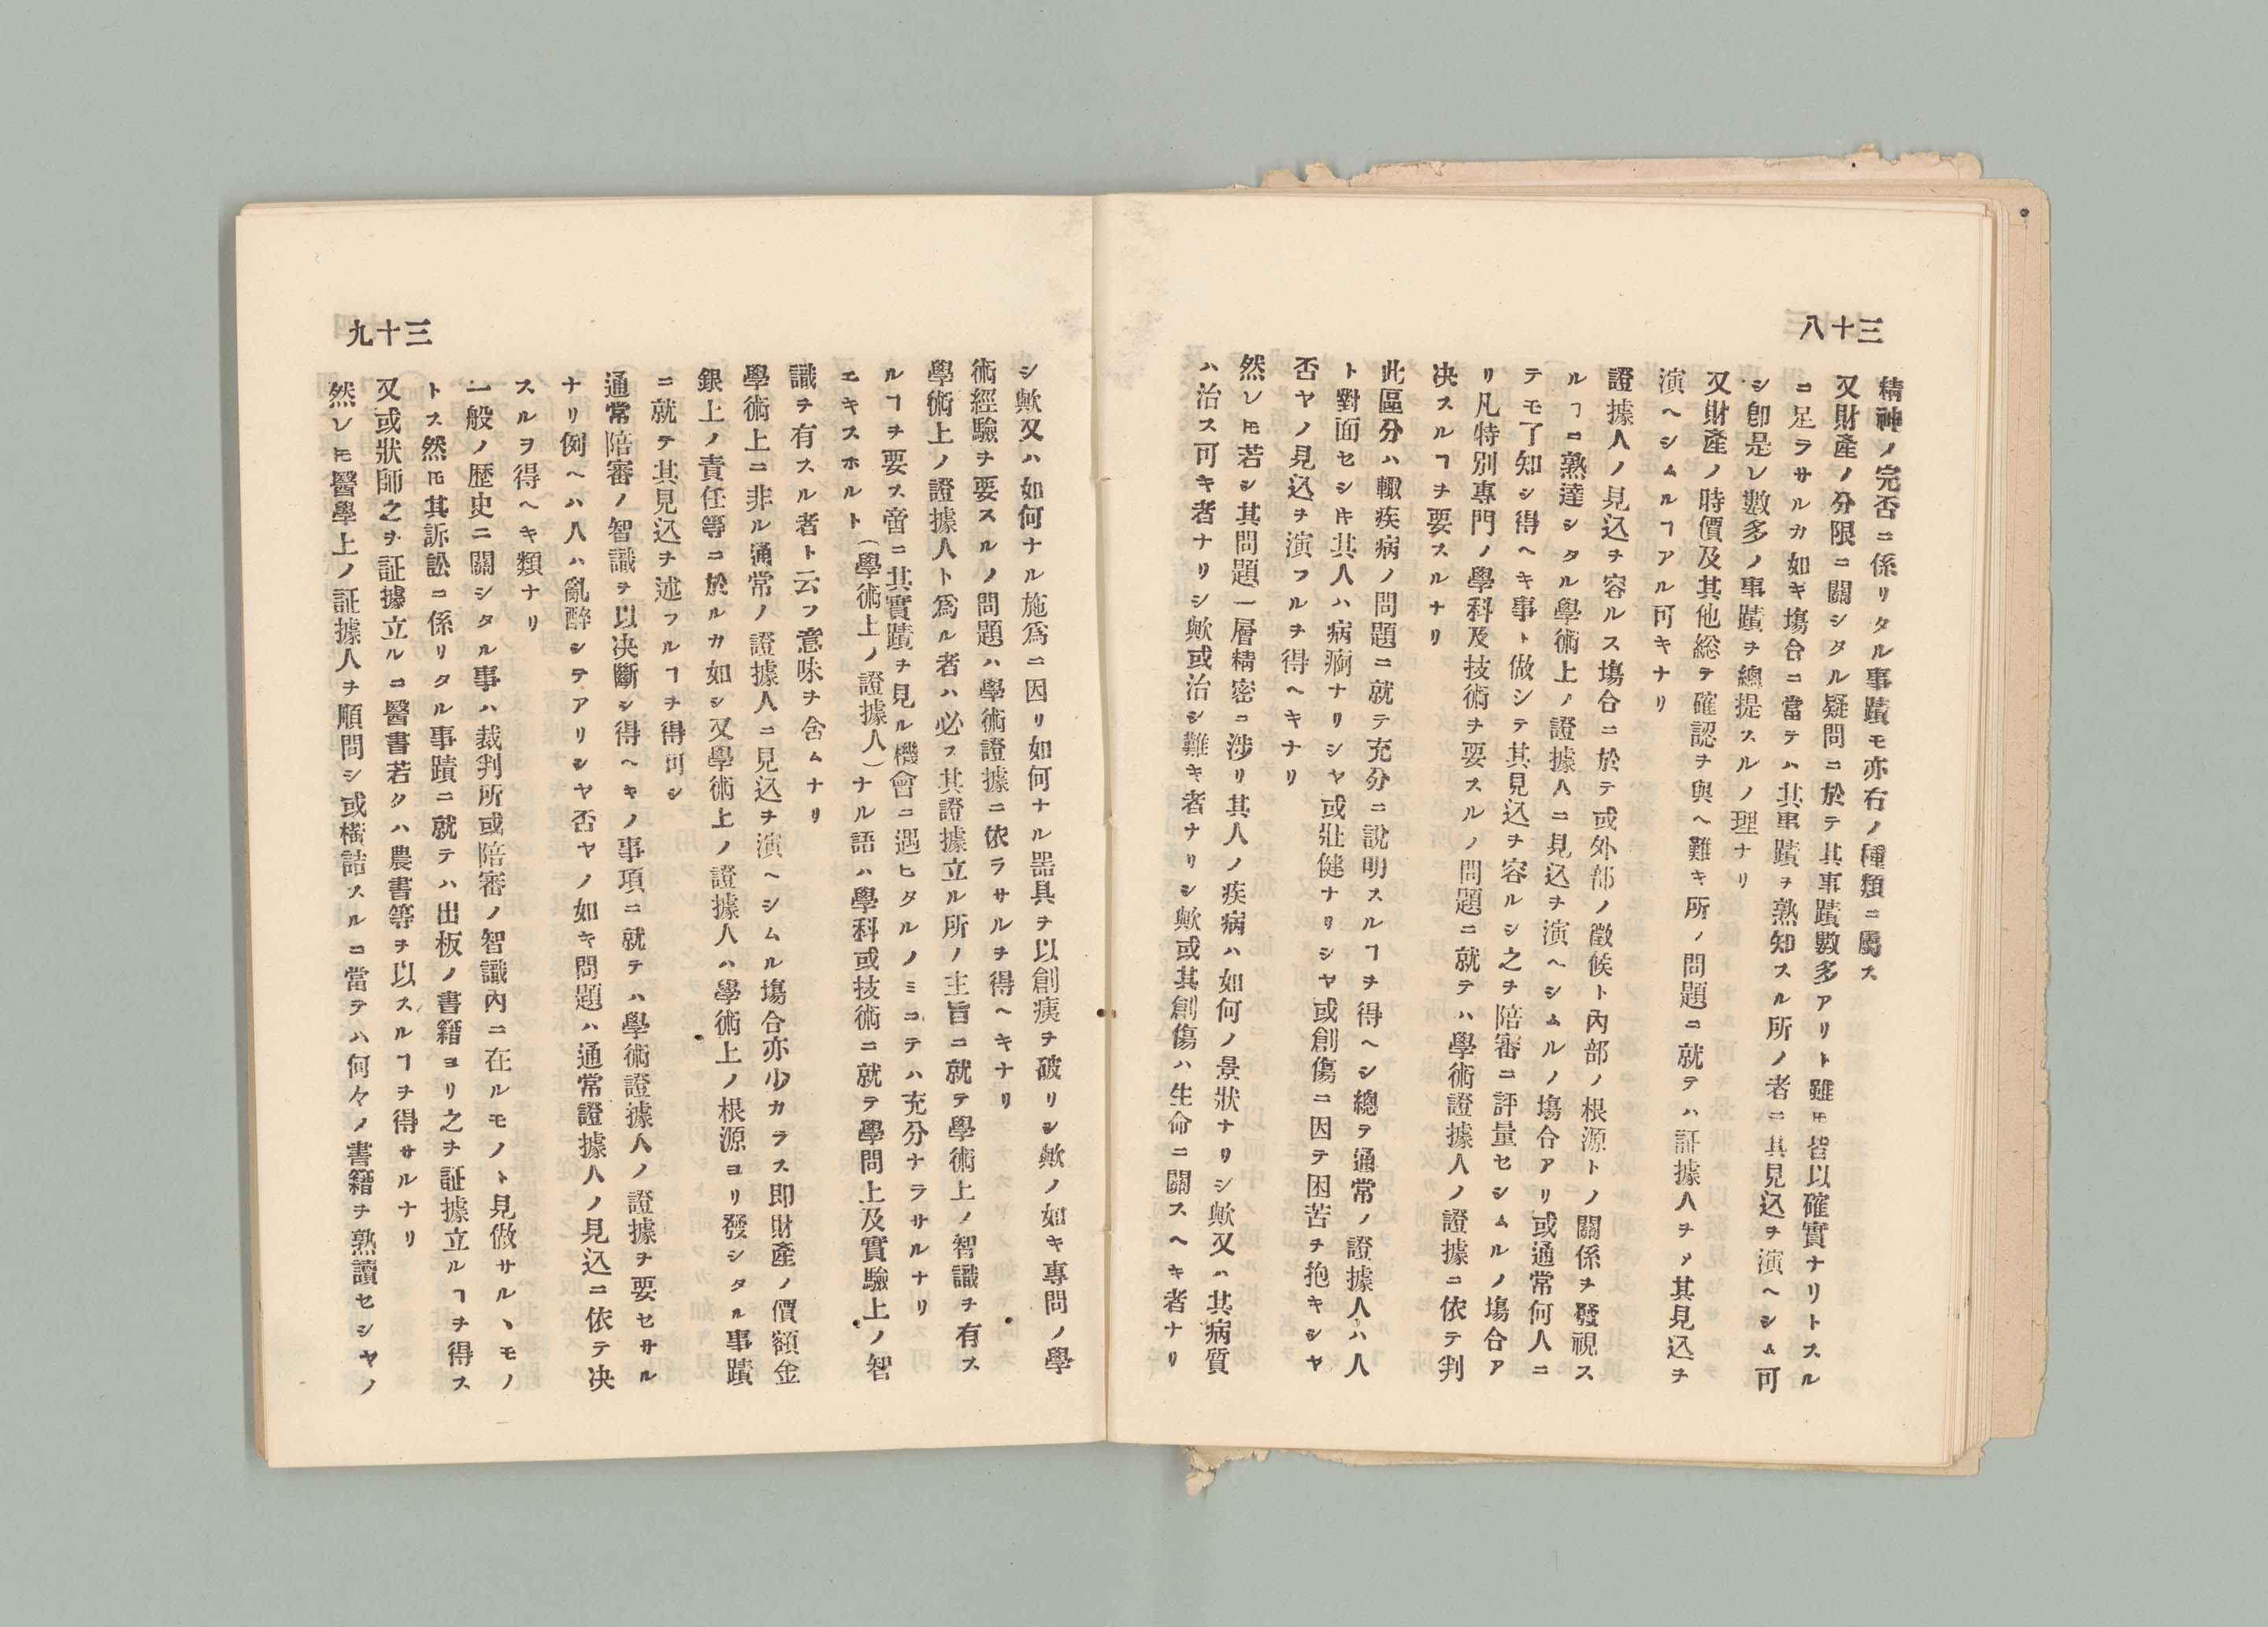 三十八
精神ノ完否ニ係リタル事蹟モ亦右ノ種類ニ屬ス
又財產ノ分限ニ關シタル疑問ニ於テ其事蹟數多アリト雖𪜈皆以確實ナリトスル
ニ足ラサルカ如キ塲合ニ當テハ其事蹟ヲ熟知スル所ノ者ニ其見込ヲ演ヘシム可
シ卽是レ數多ノ事蹟ヲ總提スルノ理ナリ
又財產ノ時價及其他総テ確認ヲ與ヘ難キ所ノ問題ニ就テハ証據人ヲメ其見込ヲ
演ヘシムルヿアル可キナリ
證據人ノ見込ヲ容ルス塲合ニ於テ或外部ノ徵候ト內部ノ根源トノ關係ヲ發視ス
ルヿニ熟達シタル學術上ノ證據人ニ見込ヲ演ヘシムルノ塲合アリ或通常何人ニ
テモ了知シ得ヘキ事ト做シテ其見込ヲ容ルシ之ヲ陪審ニ評量セシムルノ塲合ア
リ凡特別專門ノ學科及技術ヲ要スルノ問題ニ就テハ學術證據人ノ證據ニ依テ判
决スルヿヲ要スルナリ
此區分ハ輙疾病ノ問題ニ就テ充分ニ說明スルヿヲ得ヘシ總テ通常ノ證據人ハ人
ト對面セシ𪜈其人ハ病痾ナリシヤ或壯健ナリシヤ或創傷ニ因テ困苦ヲ抱キシヤ
否ヤノ見込ヲ演フルヲ得ヘキナリ
然レ𪜈若シ其問題一層精密ニ涉リ其人ノ疾病ハ如何ノ景狀ナリシ歟又ハ其病質
ハ治ス可キ者ナリシ歟或治シ難キ者ナリシ歟或其創傷ハ生命ニ關スヘキ者ナリ
三十九
シ歟又ハ如何ナル施爲ニ因リ如何ナル器具ヲ以創痍ヲ破リシ歟ノ如キ專問ノ學
術經驗ヲ要スルノ問題ハ學術證據ニ依ラサルヲ得ヘキナリ
學術上ノ證據人ト爲ル者ハ必ス其證據立ル所ノ主旨ニ就テ學術上ノ智識ヲ有ス
ルヿヲ要ス啻ニ其實蹟ヲ見ル機會ニ遇ヒタルノミニテハ充分ナラサルナリ
エキスホルト（學術上ノ證據人）ナル語ハ學科或技術ニ就テ學問上及實驗上ノ智
識ヲ有スル者ト云フ意味ヲ含ムナリ
學術上ニ非ル通常ノ證據人ニ見込ヲ演ヘシムル塲合亦少カラス即財產ノ價額金
銀上ノ責任等ニ於ルカ如シ又學術上ノ證據人ハ學術上ノ根源ヨリ發シタル事蹟
ニ就テ其見込ヲ述フルヿヲ得可シ
通常陪審ノ智識ヲ以决斷シ得ヘキノ事項ニ就テハ學術證據人ノ證據ヲ要セサル
ナリ例ヘハ人ハ亂醉シテアリシヤ否ヤノ如キ問題ハ通常證據人ノ見込ニ依テ决
スルヲ得ヘキ類ナリ
一般ノ歷史ニ關シタル事ハ裁判所或陪審ノ智識內ニ在ルモノト見做サルヽモノ
トス然𪜈其訴訟ニ係リタル事蹟ニ就テハ出板ノ書籍ヨリ之ヲ証據立ルヿヲ得ス
又或狀師之ヲ証據立ルニ醫書若クハ農書等ヲ以スルヿヲ得サルナリ
然レ𪜈醫學上ノ証據人ヲ順問シ或橫詰スルニ當テハ何々ノ書籍ヲ熟讀セシヤノ